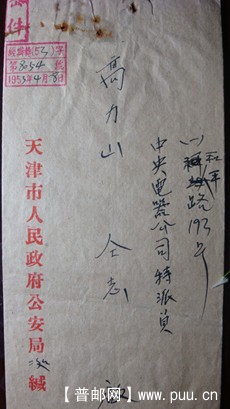 密件
第3054號
1953年4月8日
和平
(一)路193号
中央电器公司特派員
高力山 仝志
天津市人民政府公安局 緘
【普邮网】www.puu.cn